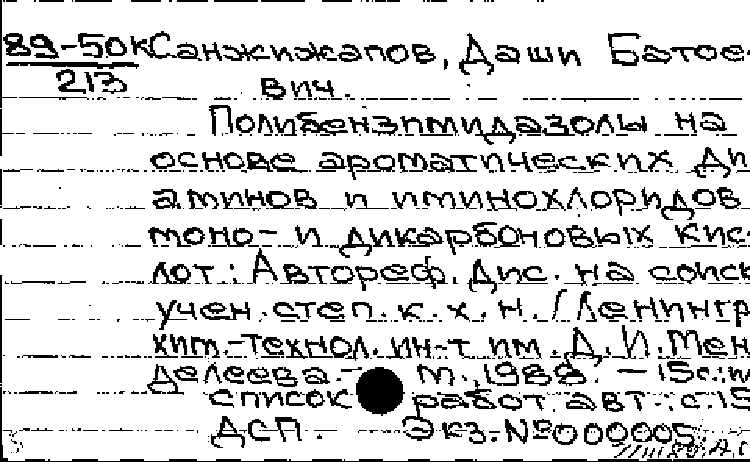 89-50к Санжижапов, Даши Батое-
213 вич.
Полибензимидазолы на
основе ароматических ди
аминов и иминохлоридов
моно- и дикарбоновых кис
лот.: Автореф. дис. на соиск
учен. степ. к. х. н. / Ленингр
хим.-технол. ин-т им. Д. И. Мен
делеева. - М., 1988. - 15 с.:
список работ авт.: с. 15
ДСП. Экз. №000005